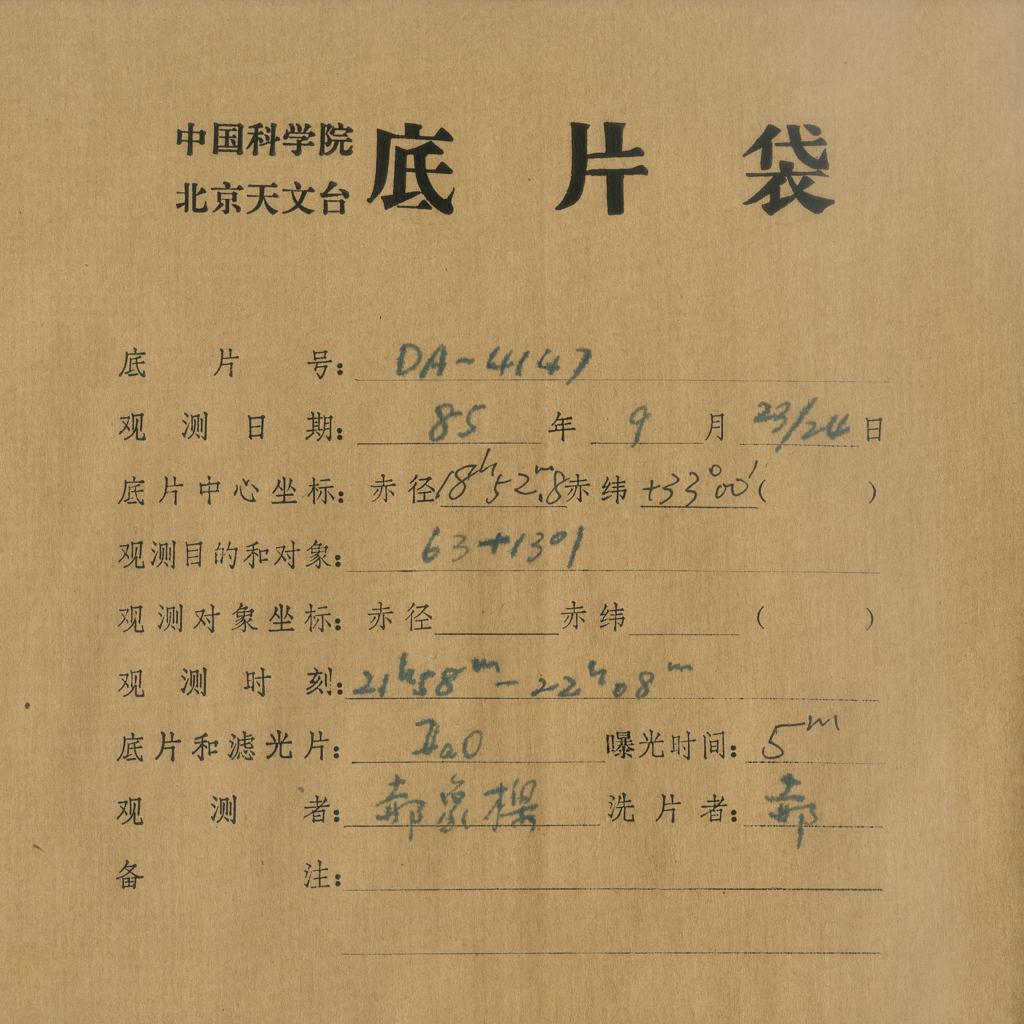 中国科学院
北京天文台
底片袋
底片号：DA-4147
观测日期：85年9月23/24日
底片中心坐标：赤径18ʰ52ᵐ.8赤纬+33°00′（ ）
观测目的和对象：63+1301
观测对象坐标：赤径 赤纬 （ ）
观测时刻：21ʰ58ᵐ-22ʰ08ᵐ
底片和滤光片：IIaO 曝光时间：5ᵐ
观测者：郝象樑 洗片者：郝
备注：